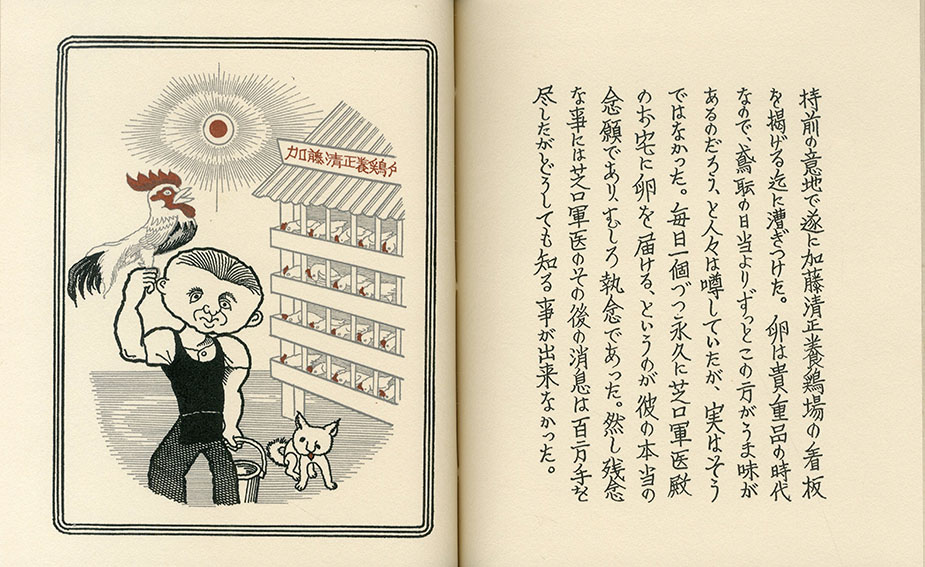 加藤清正養鶏
持前の意地で遂に加藤清正養鶏場の看板
を掲げる迄に漕ぎつけた。卵は貴重品の時代
なので、鳶職の日当よりずっとこの方がうま味が
あるのだろう、と人々は噂していたが、実はそう
ではなかった。毎日一個づつ永久に芝口軍医殿
のお宅に卵を届ける、というのが彼の本当の
念願であり、むしろ執念であった。然し残念
な事には芝口軍医のその後の消息は百方手を
尽したがどうしても知る事が出来なかった。